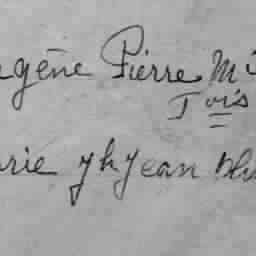 ugène Pierre M
Tois
rie yh Jean